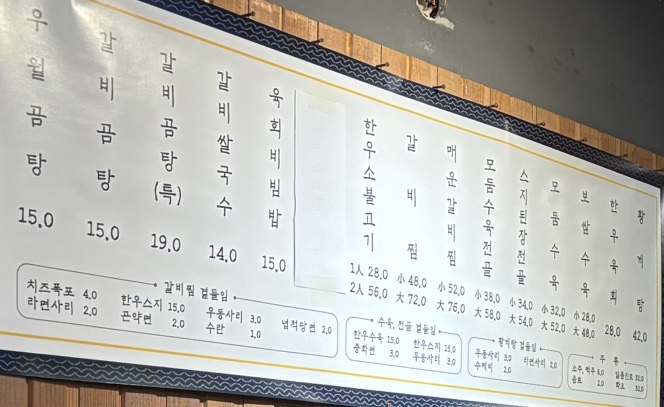 우월곰탕 15.0
갈비곰탕 15.0
갈비곰탕(특) 19.0
갈비쌀국수 14.0
육회비빔밥 15.0
한우소불고기 1人 28.0 2人 56.0
갈비찜 小 48.0 大 72.0
매운갈비찜 小 52.0 大 76.0
모둠수육전골 小 38.0 大 58.0
스지된장전골 小 34.0 大 54.0
모둠수육 小 32.0 大 52.0
보쌈수육 小 28.0 大 48.0
한우육회 28.0
황게탕 42.0
갈비찜 곁들임
치즈폭포 4.0 한우스지 15.0 우동사리 3.0 넙적당면 2.0
라면사리 2.0 곤약면 2.0 수란 1.0
수육, 전골 곁들임
한우수육 15.0 한우스지 15.0
중화면 3.0 우동사리 3.0
황게탕 곁들임
우동사리 3.0 라면사리 2.0
수제비 2.0
주류
소주, 맥주 6.0
음료 2.0